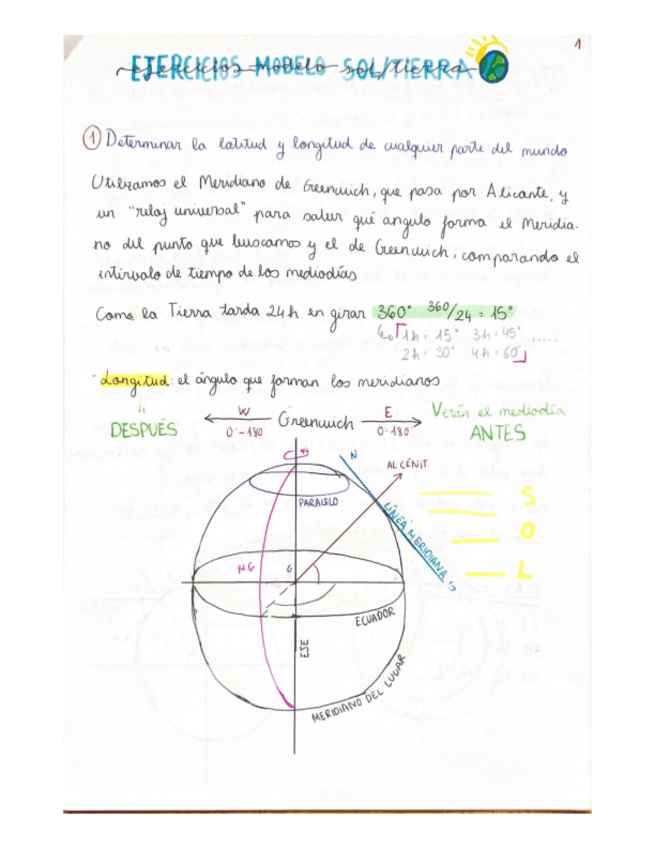 1
EJERCICIOS MODELO SOL/TIERRA
① Determinar la latitud y longitud de cualquier parte del mundo
Utilizamos el Meridiano de Greenwich, que pasa por Alicante, y
un "reloj universal" para saber qué angulo forma el Meridia-
no del punto que buscamos y el de Greenwich, comparando el
intervalo de tiempo de los mediodías
Como la Tierra tarda 24h en girar 360° 360/24 = 15°
1h = 15° 3h = 45° ....
2h = 30° 4h = 60°
· Longitud: el ángulo que forman los meridianos
DESPUÉS
W
0°-180
Greenwich
E
0°-180°
Verán el mediodía
ANTES
N
AL CÉNIT
PARALELO
LÍNEA MERIDIANA
S
S
O
L
M.G
ECUADOR
EJE
MERIDIANO DEL LUGAR